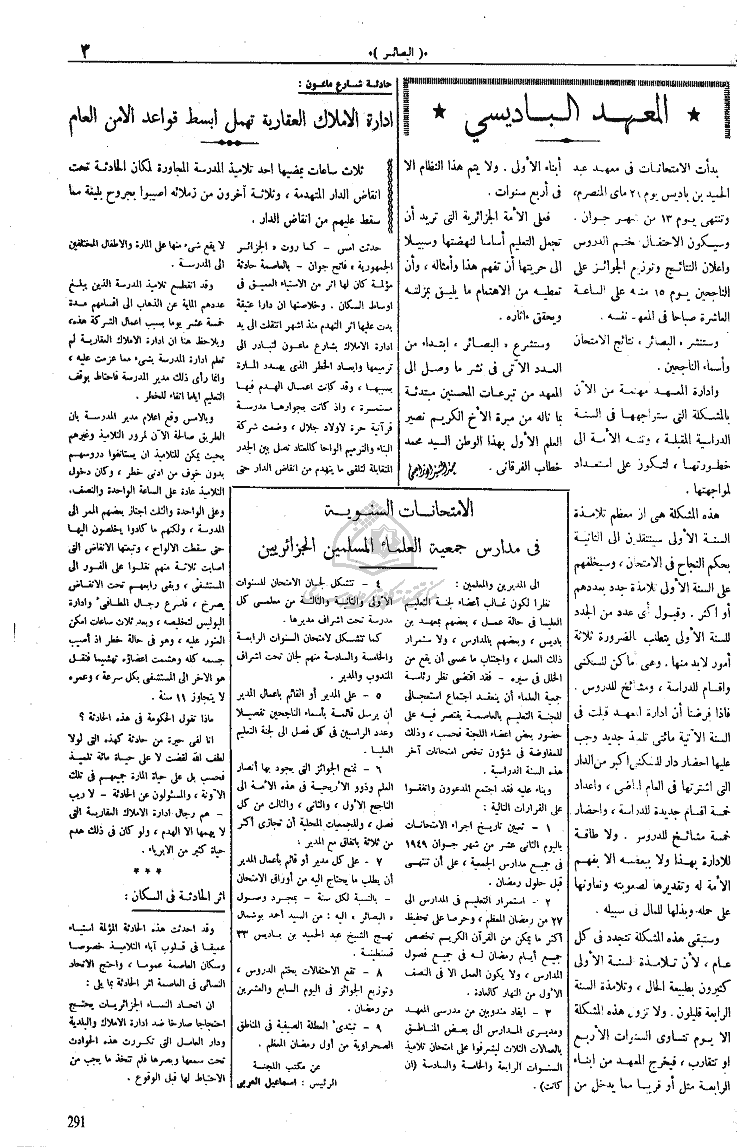 ٣
«( البصائر )»
★ المعهد الباديسي ★
بدأت الامتحانات في معهد عبد
الحميد بن باديس يوم ٢١ ماي المنصرم،
وتنتهي يوم ١٣ من شهر جوان .
وسيكون الاحتفال بختم الدروس
واعلان النتائج وتوزيع الجوائز على
الناجحين يوم ١٥ منه على الساعة
العاشرة صباحا في المعهد نفسه .
وستنشر « البصائر » نتائج الامتحان
وأسماء الناجحين .
وادارة المعهد مهتمة من الآن
بالمشكلة التي ستراجهها في السنة
الدراسية المقبلة ، وتنبه الأمة الى
خطورتها ، لتكون على استعداد
لمواجهتها .
هذه المشكلة هي أن معظم تلامذة
السنة الأولى سينتقلون الى الثانية
بحكم النجاح في الامتحان ، وسيخلفهم
على السنة الأولى تلامذة جدد بعددهم
أو أكثر . وقبول أي عدد من الجدد
للسنة الأولى يتطلب بالضرورة ثلاثة
أمور لابد منها . وهي أماكن للسكنى
واقسام للدراسة ، ومشائخ للدروس .
فاذا فرضنا أن ادارة المعهد قبلت في
السنة الآتية مائتي تلميذ جديد وجب
عليها احضار دار للسكنى اكبر من الدار
التي اشترتها في العام الماضي ، واعداد
خمسة اقسام جديدة للدراسة ، واحضار
خمسة مشائخ للدروس . ولا طاقة
للادارة بهذا ولا ببعضه الا بفهم
الأمة له وتقديرها لصعوبته وتعاونها
على حمله وبذلها للمال في سبيله .
وستبقى هذه المشكلة تتجدد في كل
عام ، لأن تلامذة السنة الأولى
كثيرون بطبيعة الحال ، وتلامذة السنة
الرابعة قليلون . ولا تزول هذه المشكلة
الا يوم تتساوى السنوات الأربع
أو تتقارب ، فيخرج المعهد من ابناء
الرابعة مثل أو قريبا مما يدخل من
أبناء الأولى . ولا يتم هذا النظام الا
في أربع سنوات .
فعلى الأمة الجزائرية التي تريد أن
تجعل التعليم أساسا لنهضتها وسبيلا
الى حريتها أن تفهم هذا وأمثاله ، وأن
تعطيه من الاهتمام ما يليق بمنزلته
ويحقق آثاره .
وستشرع « البصائر » ابتداء من
العدد الآتي في نشر ما وصل الى
المعهد من تبرعات المحسنين مبتدئة
بما ناله من مبرة الأخ الكريم نصير
العلم الأول بهذا الوطن السيد محمد
خطاب الفرقاني .
حادثة شارع ماعون :
ادارة الاملاك العقارية تهمل ابسط قواعد الامن العام
ثلاث ساعات يمضيها احد تلاميذ المدرسة المجاورة لمكان الحادثة تحت
انقاض الدار المتهدمة ، وثلاثة آخرون من زملائه اصيبوا بجروح بليغة مما
سقط عليهم من انقاض الدار .
حدثت امس - كما روت « الجزائر
الجمهورية » فاتح جوان - بالعاصمة حادثة
مؤلمة كان لها اثر من الاستياء العميق في
اوساط السكان . وخلاصتها ان دارا عتيقة
بدت عليها اثر التهدم منذ اشهر انتقلت الى يد
ادارة الاملاك بشارع ماعون لتبادر الى
ترميمها وابعاد الخطر الذي يهدد المارة
بسببها ، وقد كانت اعمال الهدم فيها
مستمرة ، واذ كانت بجوارها مدرسة
قرآنية حرة لاولاد جلال ، وضعت شركة
البناء والترميم الواحا كالمعتاد تصل بين الجدر
المتقابلة لتلقى ما يتهدم من انقاض الدار حتى
لا يقع شيء منها على المارة والاطفال المختلفين
الى المدرسة .
وقد انقطع تلاميذ المدرسة الذين يبلغ
عددهم المائة عن الذهاب الى اقسامهم مدة
خمسة عشر يوما بسبب اعمال الشركة هذه،
ويلاحظ هنا ان ادارة الاملاك العقارية لم
تعلم ادارة المدرسة بشيء مما عزمت عليه ،
وانما رأى ذلك مدير المدرسة فاحتاط بوقف
التعليم اياما اتقاء للخطر .
وبالامس وقع اعلام مدير المدرسة بان
الطريق صالحة الآن لمرور التلاميذ وغيرهم
بحيث يمكن للتلاميذ ان يستأنفوا دروسهم
بدون خوف من ادنى خطر ، وكان دخول
التلاميذ عادة على الساعة الواحدة والنصف.
وعلى الواحدة والثلث اجتاز بعضهم الممر الى
المدرسة ، ولكنهم ما كادوا يخلصون اليها
حتى سقطت الالواح ، وتبعتها الانقاض التي
اصابت ثلاثة منهم نقلوا على الفور الى
المستشفى ، وبقى رابعهم تحت الانقاض
يصرخ ، فاسرع رجال المطافئ وادارة
البوليس لتخليصه ، وبعد ثلاث ساعات امكن
العثور عليه ، وهو في حالة خطر اذ اصيب
جسمه كله وهشمت اعضاؤه تهشيما فنقل
هو الآخر الى المستشفى بكل سرعة ، وعمره
لا يتجاوز ١١ سنة .
ماذا تقول الحكومة في هذه الحادثة ؟
انا لفي حيرة من حادثة كهذه التي لولا
لطف الله لقضت لا على حياة مائة تلميذ
فحسب بل على حياة المارة جميعهم في تلك
الآونة ، والمسئولون عن الحادثة - لا ريب
- هم رجال ادارة الاملاك العقارية التي
لا يهمها الا الهدم ، ولو كان في ذلك هدم
حياة كثير من الابرياء .
* * *
اثر الحادثة في السكان :
وقد احدثت هذه الحادثة المؤلمة استياء
عميقا في قلوب آباء التلاميذ خصوصا
وسكان العاصمة عموما ، واحتج الاتحاد
النسائي في العاصمة اثر الحادثة بما يلي :
ان اتحاد النساء الجزائريات يحتج
احتجاجا صارخا ضد ادارة الاملاك والبلدية
ودار العامل التي تكررت هذه الحوادث
تحت سمعها وبصرها فلم تتخذ ما يجب من
الاحتياط لها قبل الوقوع .
الامتحانات السنوية
في مدارس جمعية العلماء المسلمين الجزائريين
الى المديرين والمعلمين :
نظرا لكون غالب أعضاء لجنة التعليم
العليا في حالة عمل ، بعضهم بمعهد بن
باديس ، وبعضهم بالمدارس ، ولاستمرار
ذلك العمل ، واجتناب ما عسى أن يقع من
الخلل في سيره - فقد اقتضى نظر رئاسة
جمعية العلماء أن ينعقد اجتماع استعجالي
للجنة التعليم بالعاصمة يقتصر فيه على
حضور بعض اعضاء اللجنة فحسب ، وذلك
للمفاوضة في شؤون تخص امتحانات آخر
هذه السنة الدراسية .
وبناء عليه فقد اجتمع المدعوون واتفقوا
على القرارات التالية :
١ - تعيين تاريخ اجراء الامتحانات
باليوم الثاني عشر من شهر جوان ١٩٤٩
في جميع مدارس الجمعية ، على أن تنتهى
قبل حلول رمضان .
٢ - استمرار التعليم في المدارس الى
٢٧ من رمضان المعظم ، وحرصا على تحفيظ
أكثر ما يمكن من القرآن الكريم تخصص
جميع أيام رمضان له في جميع فصول
المدارس ، ولا يكون العمل الا في النصف
الأول من النهار كالعادة .
٣ - ايفاد مندوبين من مدرسي المعهد
ومديري المدارس الى بعض المناطق
بالعمالات الثلاث ليشرفوا على امتحان تلاميذ
السنوات الرابعة والخامسة والسادسة (ان
كانت) .
٤ - تتشكل لجان الامتحان للسنوات
الأولى والثانية والثالثة من معلمي كل
مدرسة تحت اشراف مديرها .
كما تتشكل لامتحان السنوات الرابعة
والخامسة والسادسة منهم لجان تحت اشراف
المندوب والمدير .
٥ - على المدير أو القائم بأعمال المدير
أن يرسل قائمة بأسماء الناجحين تفصيلا
وعدد الراسبين في كل فصل الى لجنة التعليم
العليا .
٦ - تمنح الجوائز التي يجود بها أنصار
العلم وذوو الأريحية في هذه الأمة الى
الناجح الأول ، والثاني ، والثالث من كل
فصل ، وللجمعيات المحلية أن تجازى أكثر
من ثلاثة باتفاق مع المدير .
٧ - على كل مدير أو قائم بأعمال المدير
أن يطلب ما يحتاج اليه من أوراق الامتحان
- بالنسبة لكل سنة - بمجرد وصول
« البصائر » اليه : من السيد أحمد بوشمال
نهج الشيخ عبد الحميد بن باديس ٣٣
قسنطينة .
٨ - تقع الاحتفالات بختم الدروس ،
وتوزيع الجوائز في اليوم السابع والعشرين
من رمضان .
٩ - تبتدئ العطلة الصيفية في المناطق
الصحراوية من أول رمضان المعظم .
عن مكتب اللجنة
الرئيس : اسماعيل العربي
291